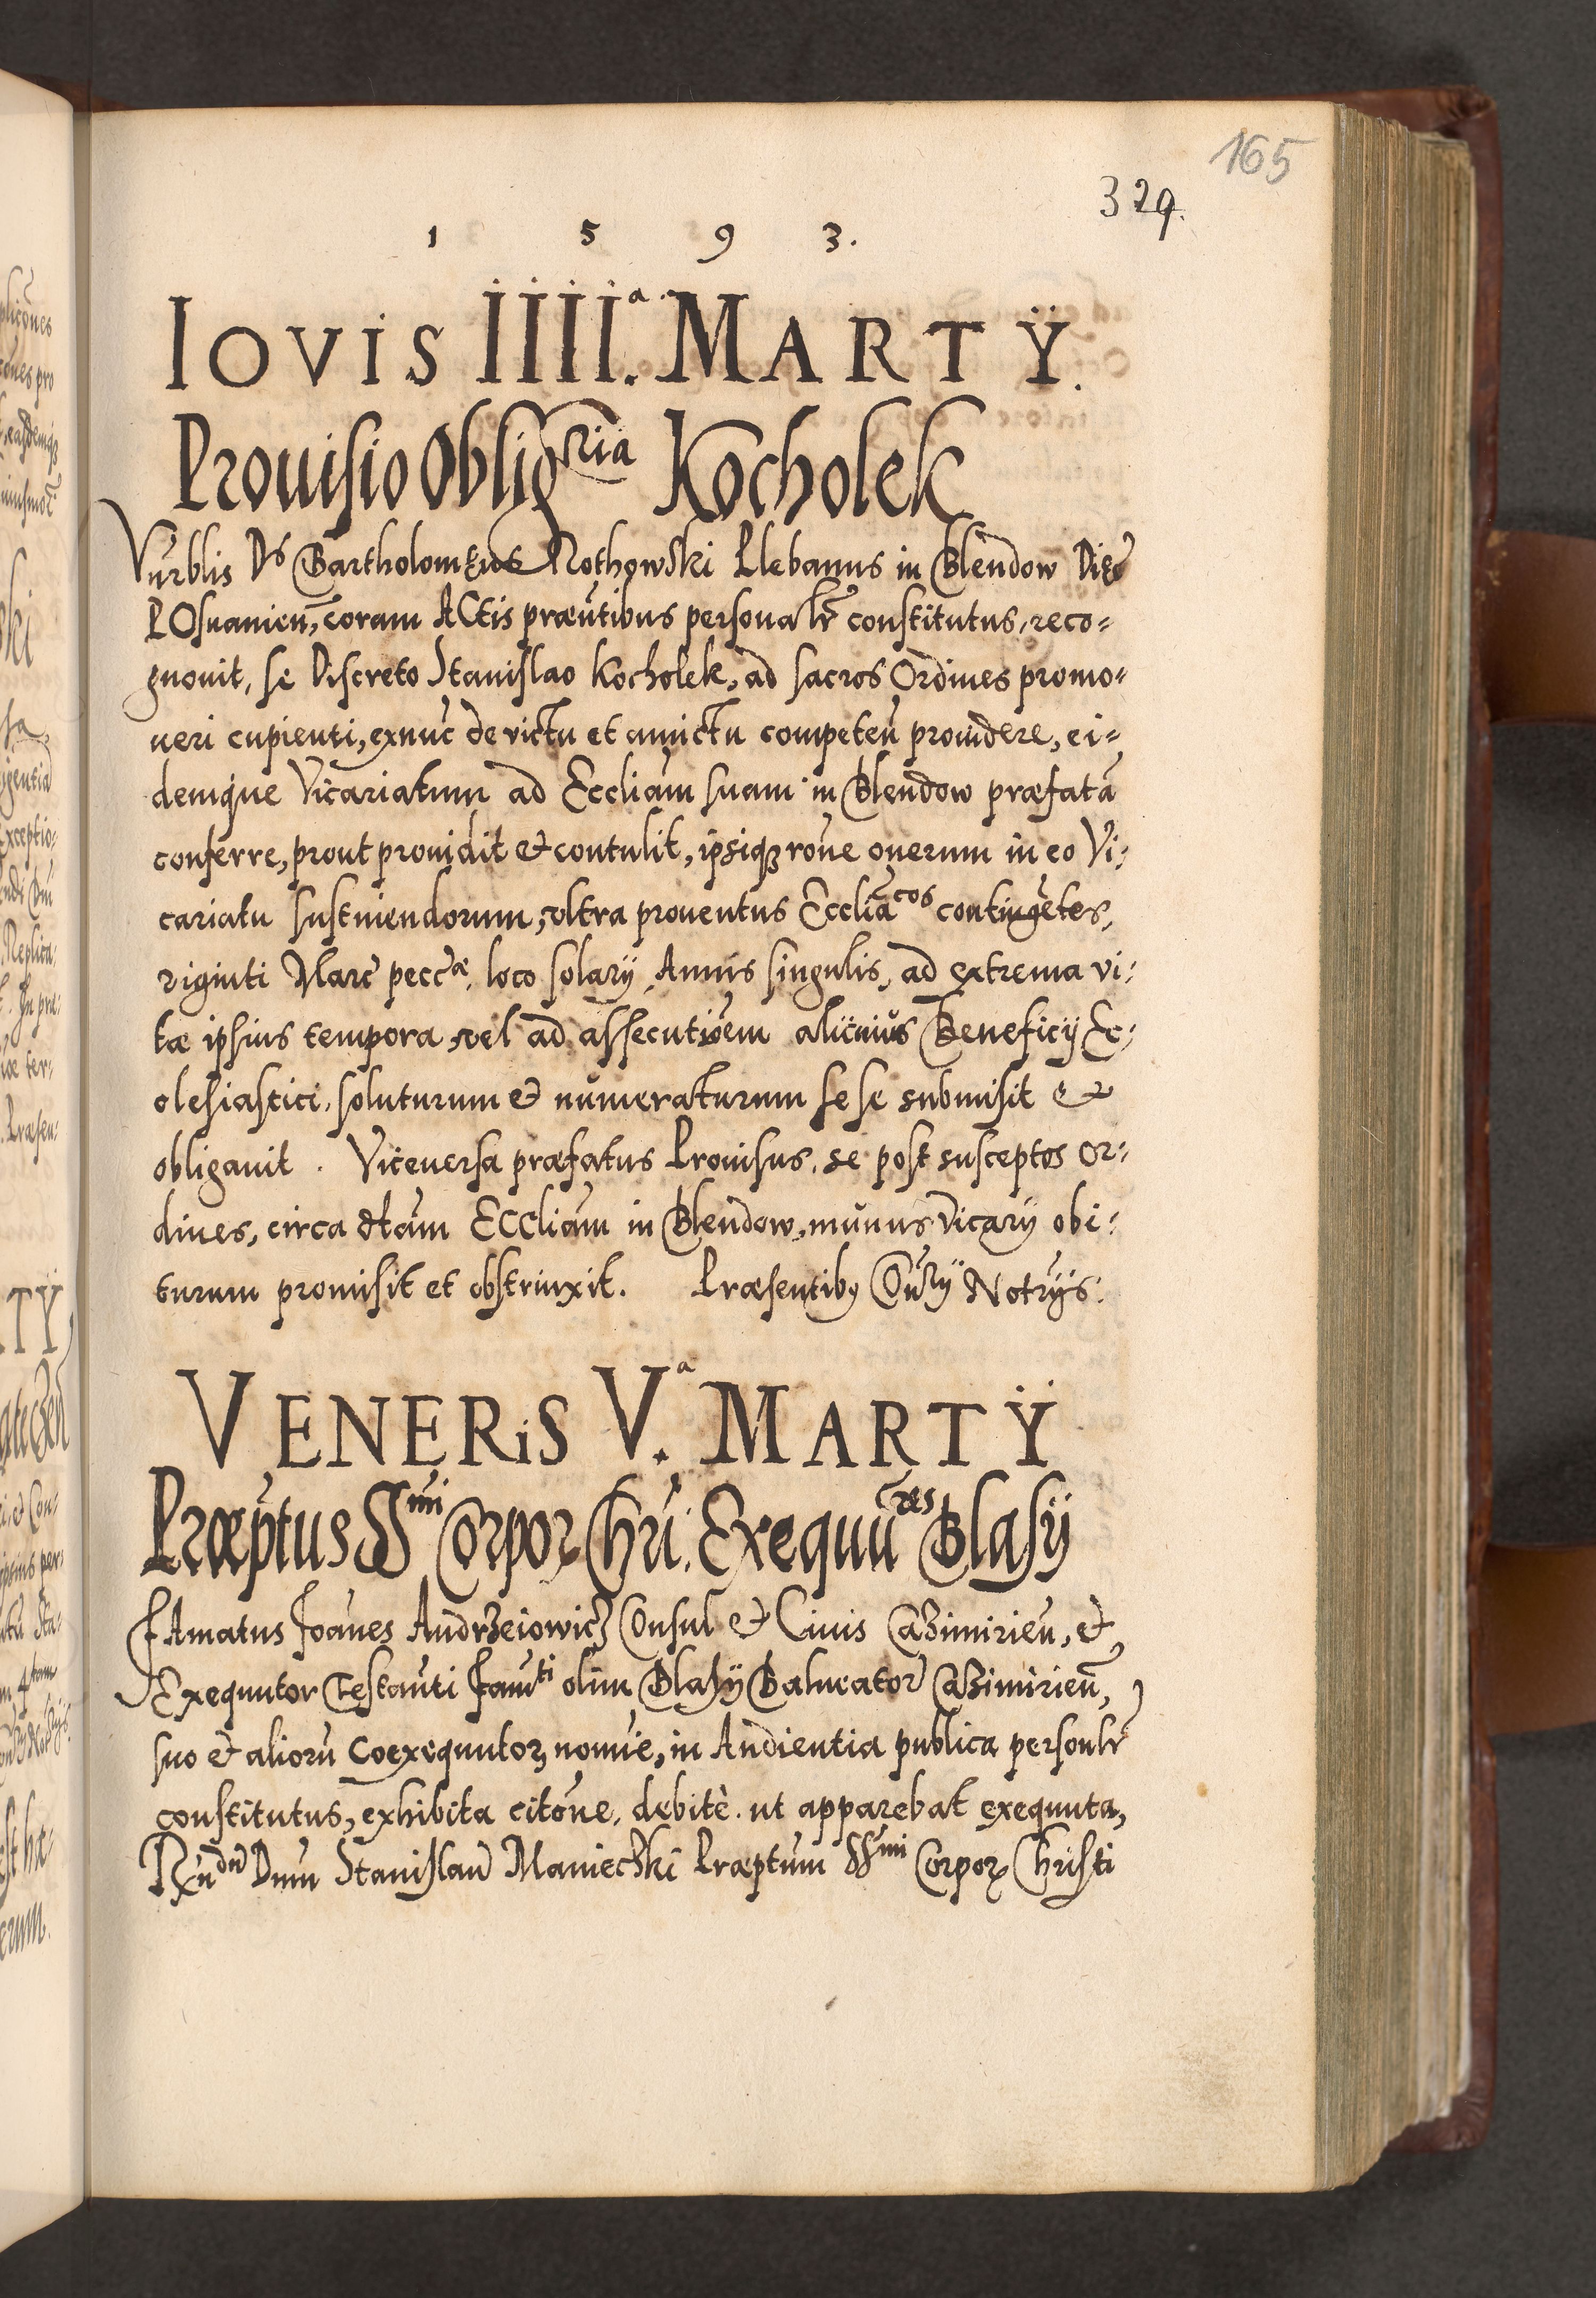 165
329.
1 5 9 3.
IOVIS IIII.ª MARTŸ.
Prouisio Obligria Kocholek
Vnrblis Ds Bartholomęus Nothowski Plebanus in Blendow Diȩc
POsnanien, coram ACtis præntibus personalr constitutus, reco=
gnouit, se Discreto Stanislao Kocholek, ad sacros Ordines promo=
ueri cupienti, exnuc de victu et amictu competen prouidere, ei=
demque Vicariatum ad Eccliam suam in Blendow præfatā
conferre, prout prouidit et contulit, ipsiqz rone onerum in eo Vi=
cariatu sustinendorum, vltra prouentus Eccliācos contingētes,
viginti Marc pecc æ, loco solarÿ, Annis singulis, ad extrema vi=
tæ ipsius tempora, vel ad assecutioem alicuius Beneficÿ Ec=
clesiastici, soluturum et numeraturum se se submisit et
obligauit. Viceuersa præfatus Prouisus, se post susceptos Or=
dines, circa dtam ECCliam in Blendow, munus Vicarÿ obi=
turum promisit et obstrinxit. Præsentiby Conrÿ Notrÿs.
VENERIS V.ª MARTŸ
Præptus SSmi Corpor Chri. Exequūres Blasÿ
FAmatus Joānes Andrzeiowicz Consul et Ciuis Cazimirien, et
Exequutor Testanti Famti olim Blasÿ Balneator Cazimirien,
suo et alioru Coexequutorz nomie, in Audientia publica personlr
constitutus, exhibita citōne, debitè ut apparebat exequuta,
Rndū Dnm Stanislaū Manieczki Præptum SSmi Corpor Christi